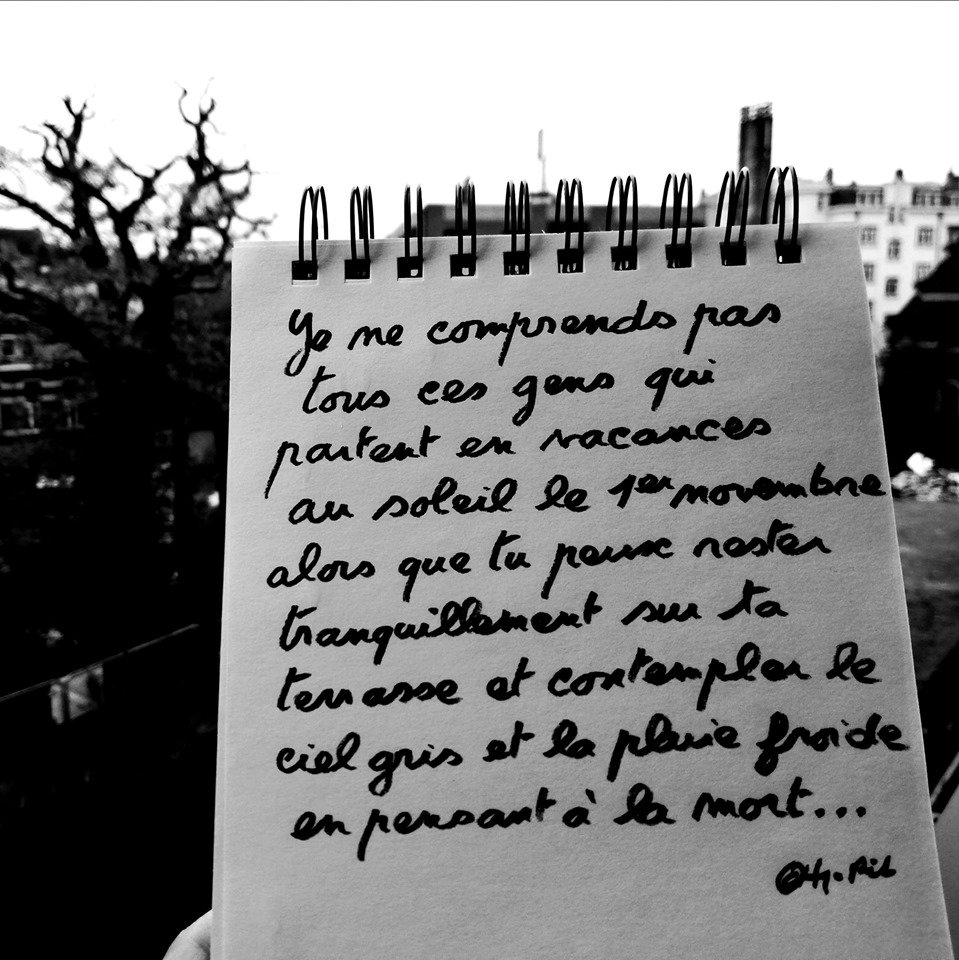 Je ne comprends pas
tous ces gens qui
partent en vacances
au soleil le 1er novembre
alors que tu peux rester
tranquillement sur ta
terrasse et contempler le
ciel gris et la pluie froide
en pensant à la mort...